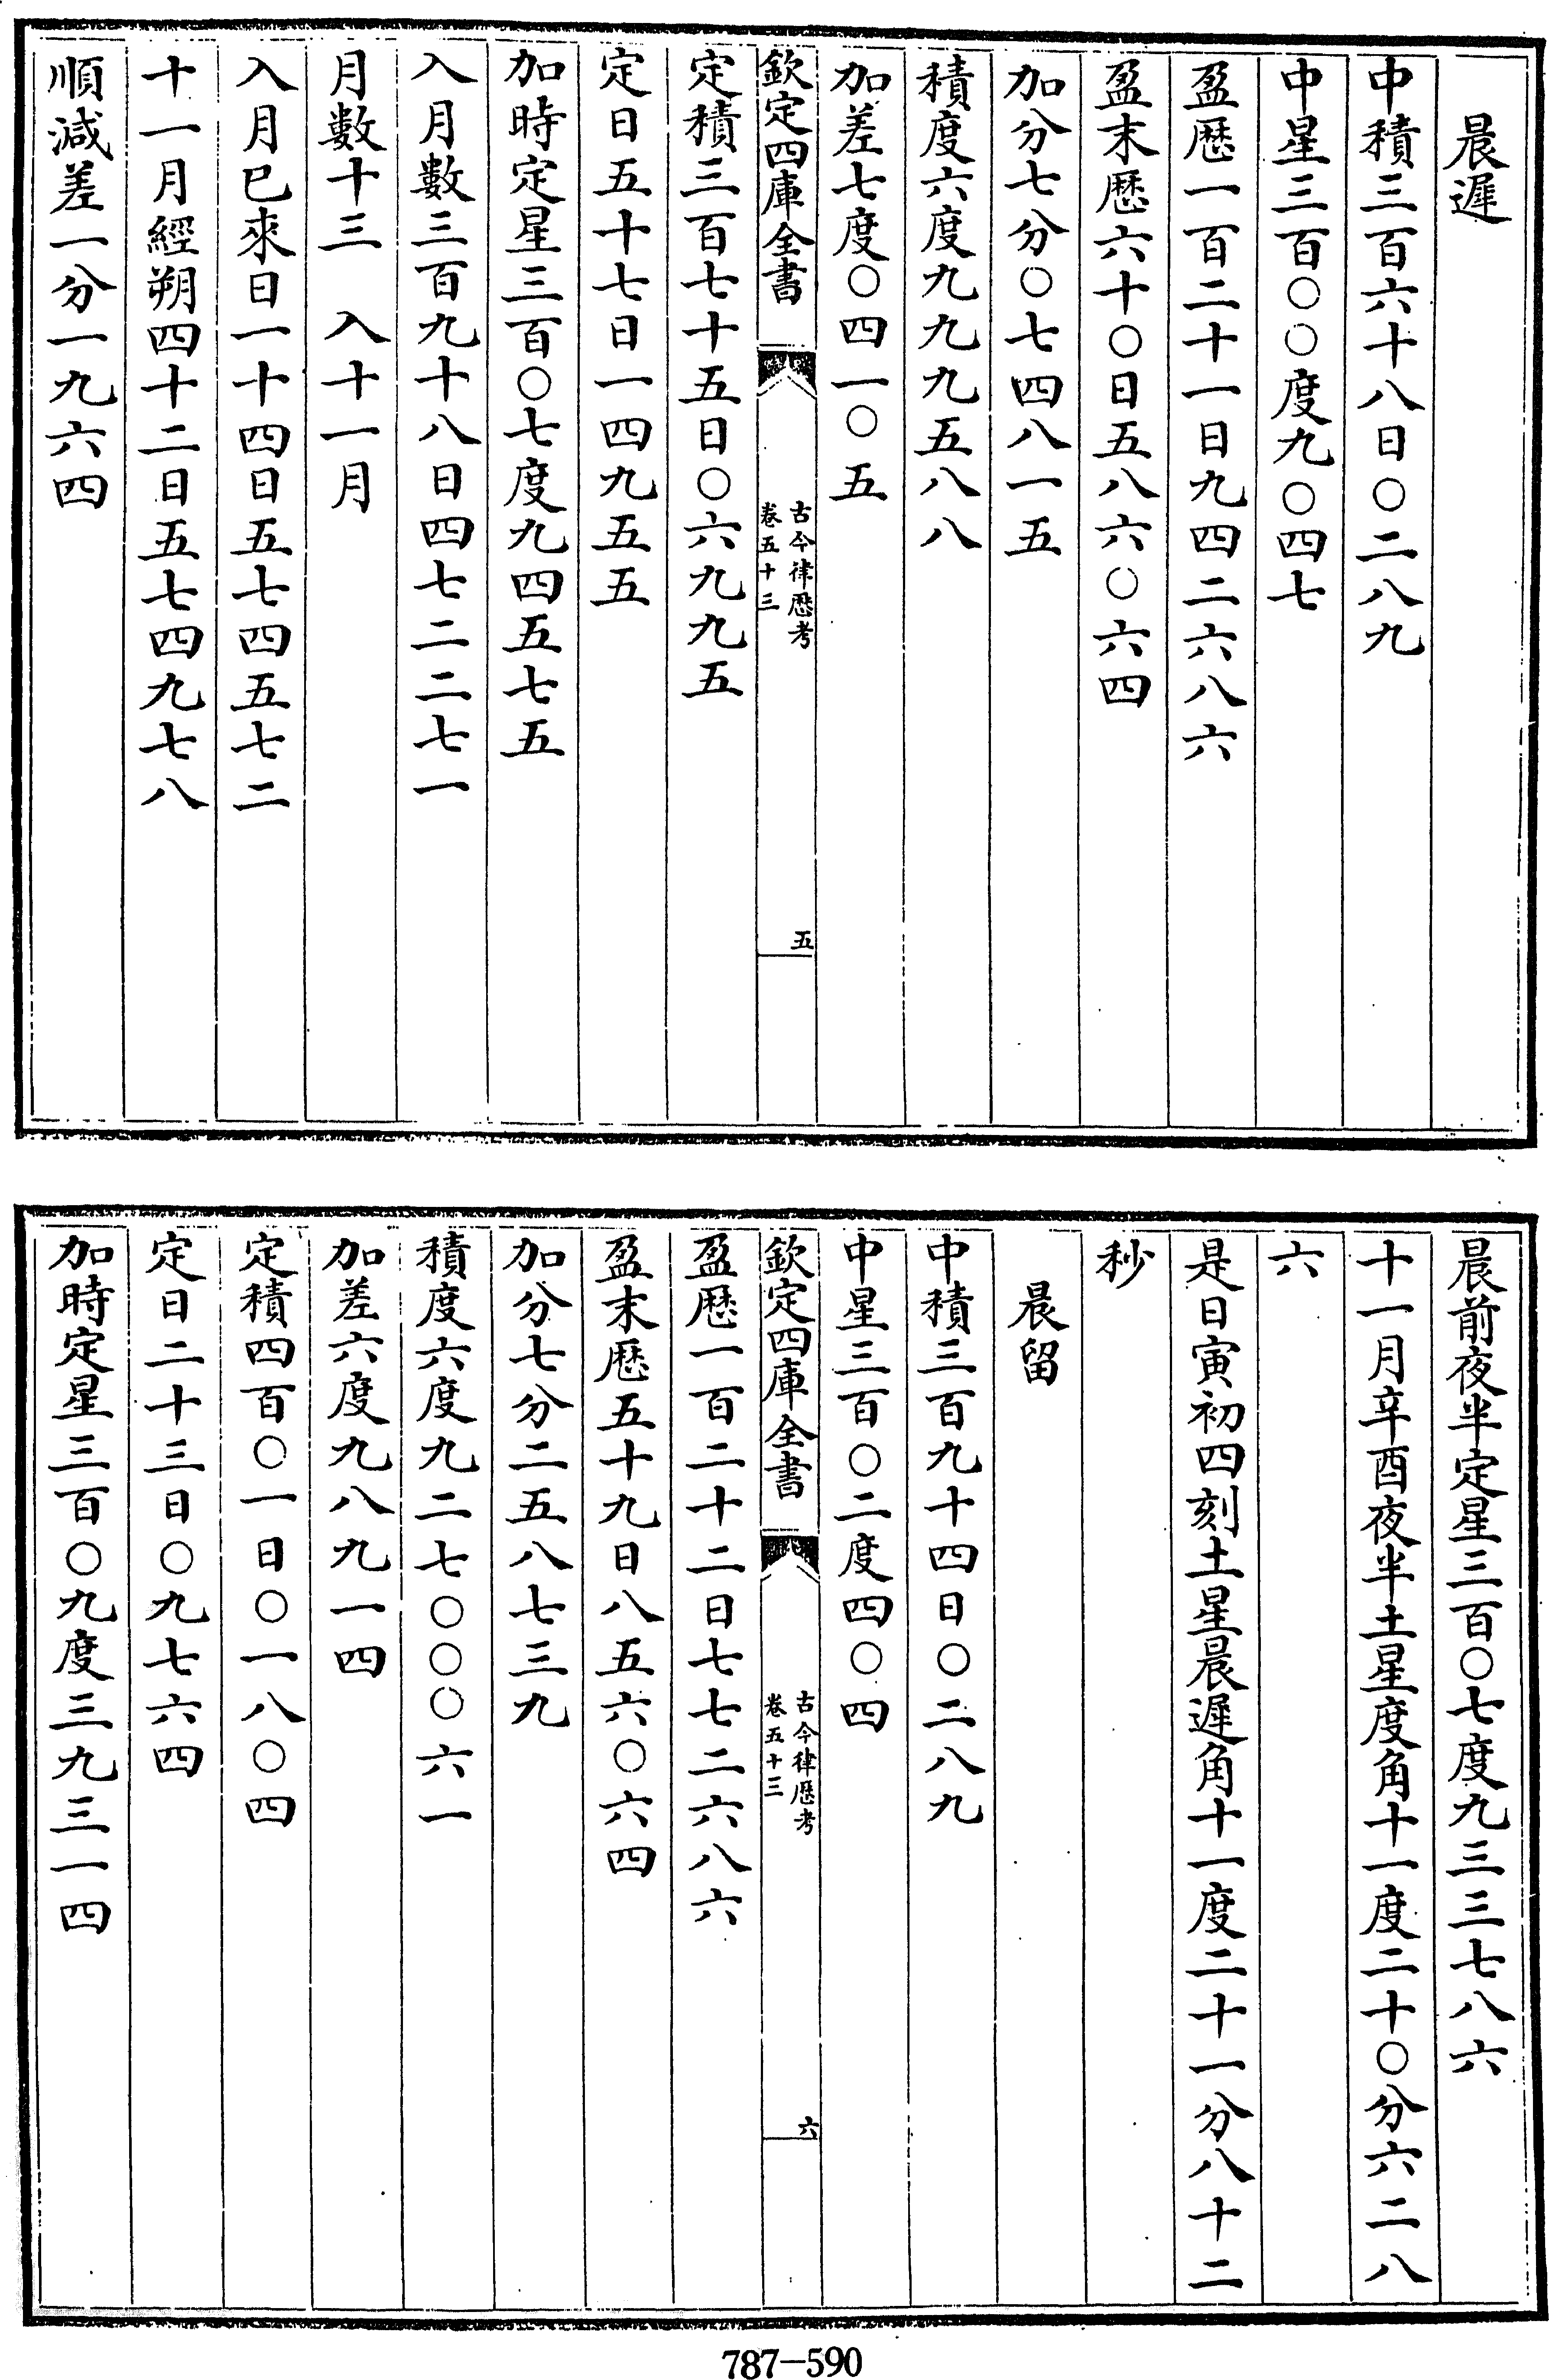 晨遲
中積三百六十八日〇二八九
中星三百〇〇度九〇四七
盈歴一百二十一日九四二六八六
盈末歴六十〇日五八六〇六四
加分七分〇七四八一五
積度六度九九九五八八
加差七度〇四一〇五
欽定四庫全書
古今律歴考
卷五十三
五
定積三百七十五日〇六九九五
定日五十七日一四九五五
加時定星三百〇七度九四五七五
入月數三百九十八日四七二二七一
月數十三　入十一月
入月已來日一十四日五七四五七二
十一月經朔四十二日五七四九七八
順減差一分一九六四
晨前夜半定星三百〇七度九三三七八六
十一月辛酉夜半土星度角十一度二十〇分六二八
六
是日寅初四刻土星晨遲角十一度二十一分八十二
秒
晨留
中積三百九十四日〇二八九
中星三百〇二度四〇四
欽定四庫全書
古今律歴考
卷五十三
六
盈歴一百二十二日七七二六八六
盈末歴五十九日八五六〇六四
加分七分二五八七三九
積度六度九二七〇〇〇六一
加差六度九八九一四
定積四百〇一日〇一八〇四
定日二十三日〇九七六四
加時定星三百〇九度三九三一四
787-590